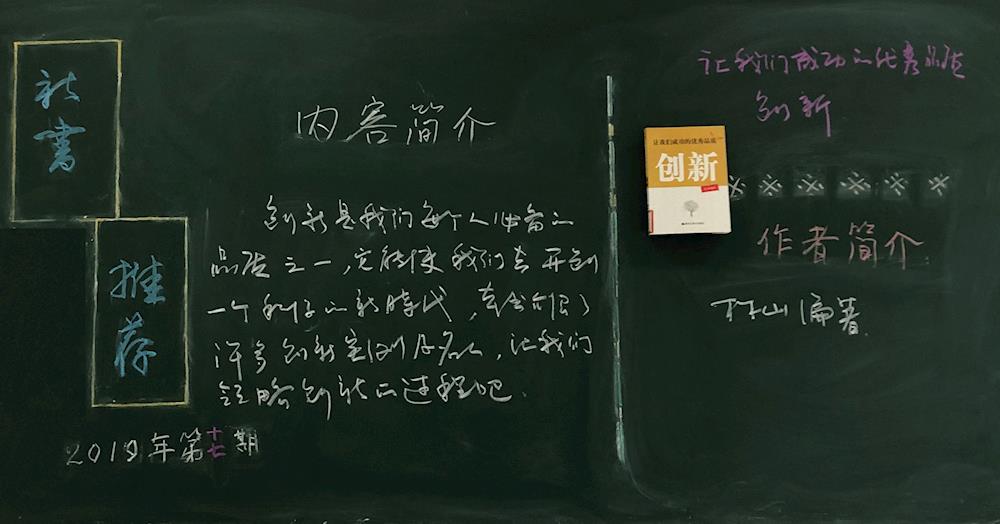 新书
推荐
2019年第十七期
内容简介
创新是我们每个人必备的
品质之一,它能使我们去开创
一个和的新時代,本书介绍了
许多创新案例及名人,让我们
领略创新的过程吧.
让我们成功的优秀品质
创新
让我们成功的优秀品质
创新
※ ※ ※ ※ ※ ※
作者简介
村山编著